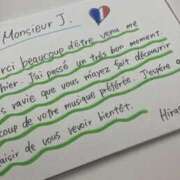 Monsieur J.
rci beaucoup d'être venu me
hier. J'ai passé un très bon moment.
s ravie que vous m'ayez fait découvrir
coup de votre musique préférée. J'espère a
aisir de vous revoir bientôt.
Hira